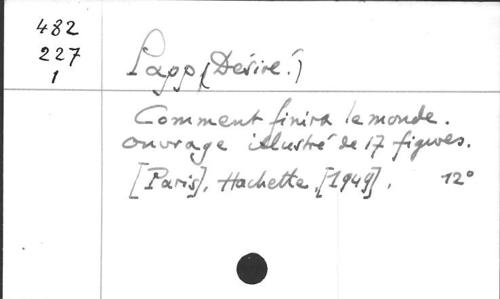 482
227
1
Papp (Désiré.)
Comment finira le monde.
ouvrage illustré de 17 figures.
[Paris], Hachette, [1949]. 12°